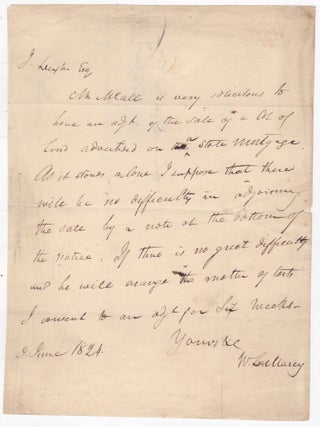 Esq
Mr McCall is very solicitous to
have an adjt. of the sale of a lot of
land advertised on a state mortgage.
As it stands alone I suppose that there
will be no difficulty in adjourning
the sale by a note at the bottom of
the notice. If there is no great difficulty
and he will arrange the matter of costs
I consent to an adjt for Six weeks—
Yours &c
9 June 1824 W. L. Marcy